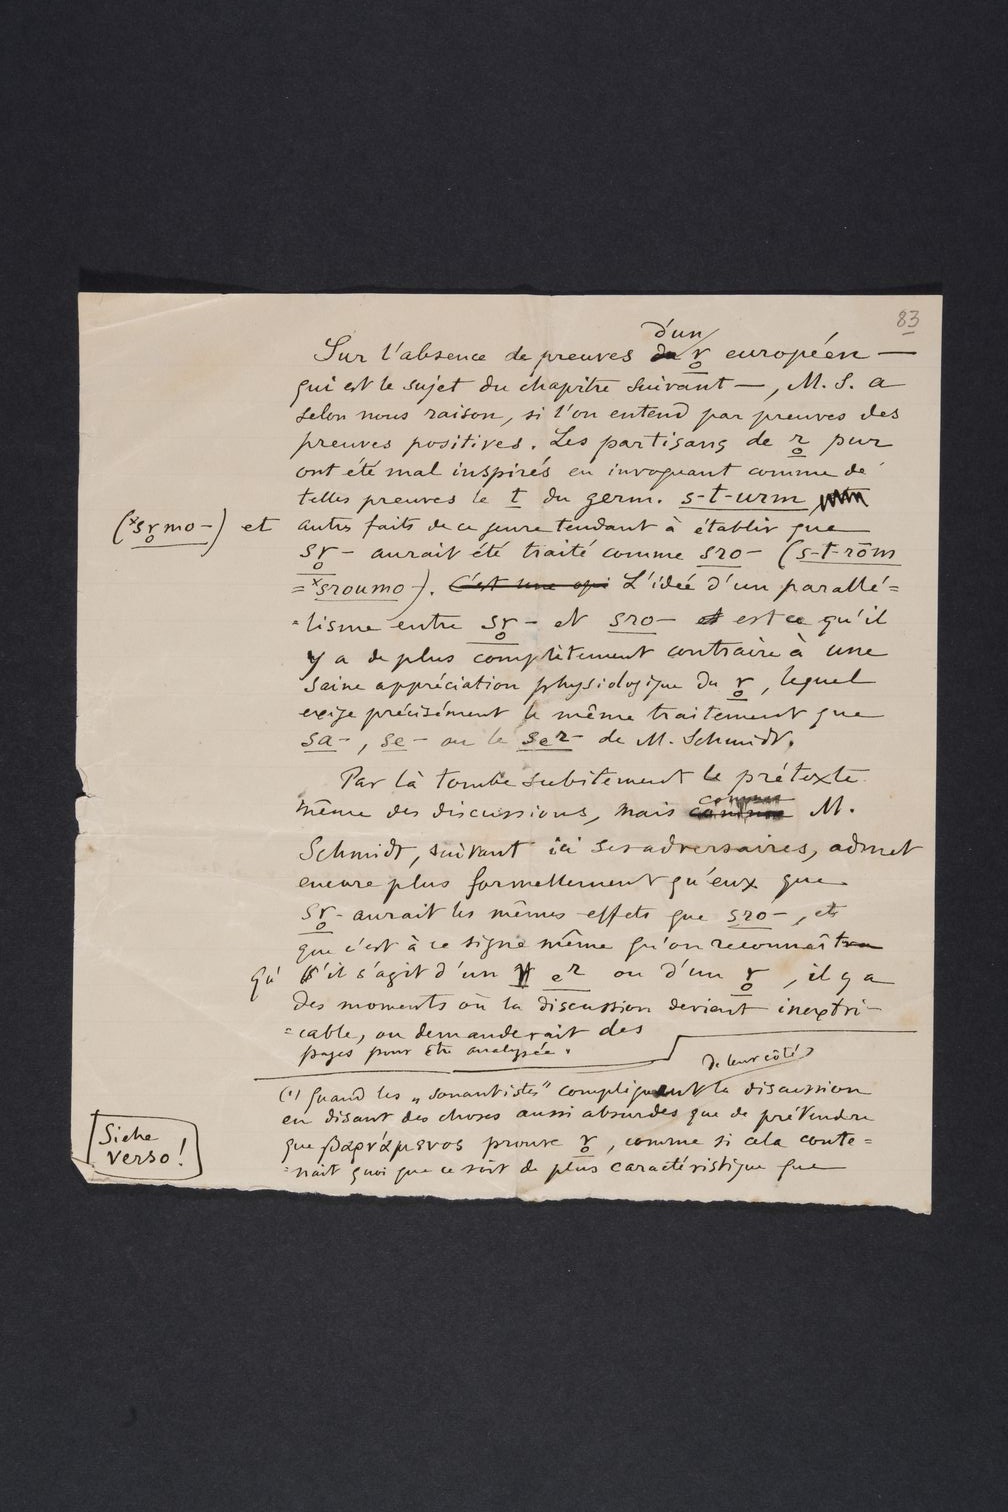 83
d'un
Sur l'absence de preuves du r̥ européen —
qui est le sujet du chapitre suivant —, M. S. a
selon nous raison, si l'on entend par preuves des
preuves positives. Les partisans de r̥ pur
ont été mal inspirés en invoquant comme de
telles preuves le t du germ. s-t-urm
(*sr̥mo-) et autres faits de ce genre tendant à établir que
sr̥- aurait été traité comme sro- (s-t-rōm
= *sroumo-). C'est une opi L'idée d'un parallé=
=lisme entre sr̥- et sro- est ce qu'il
y a de plus complètement contraire à une
saine appréciation physiologique du r̥, lequel
exige précisément le même traitement que
sa-, se- ou le sᵉr- de M. Schmidt.
Par là tombe subitement le prétexte
même des discussions, mais comme M.
Schmidt, suivant ici ses adversaires, admet
encore plus formellement qu'eux que
sr̥- aurait les mêmes effets que sro-, et
que c'est à ce signe même qu'on reconnaîtra
qu' s'il s'agit d'un ᵉr ou d'un r̥, il y a
des moments où la discussion devient inextri-
=cable, ou demanderait des
pages pour être analysée.
de leur côté
(¹) Quand les „sonantistes" compliquent la discussion
en disant des choses aussi absurdes que de prétendre
que βαρνάμενος prouve r̥, comme si cela conte=
=nait quoi que ce soit de plus caractéristique que
Siehe
verso!